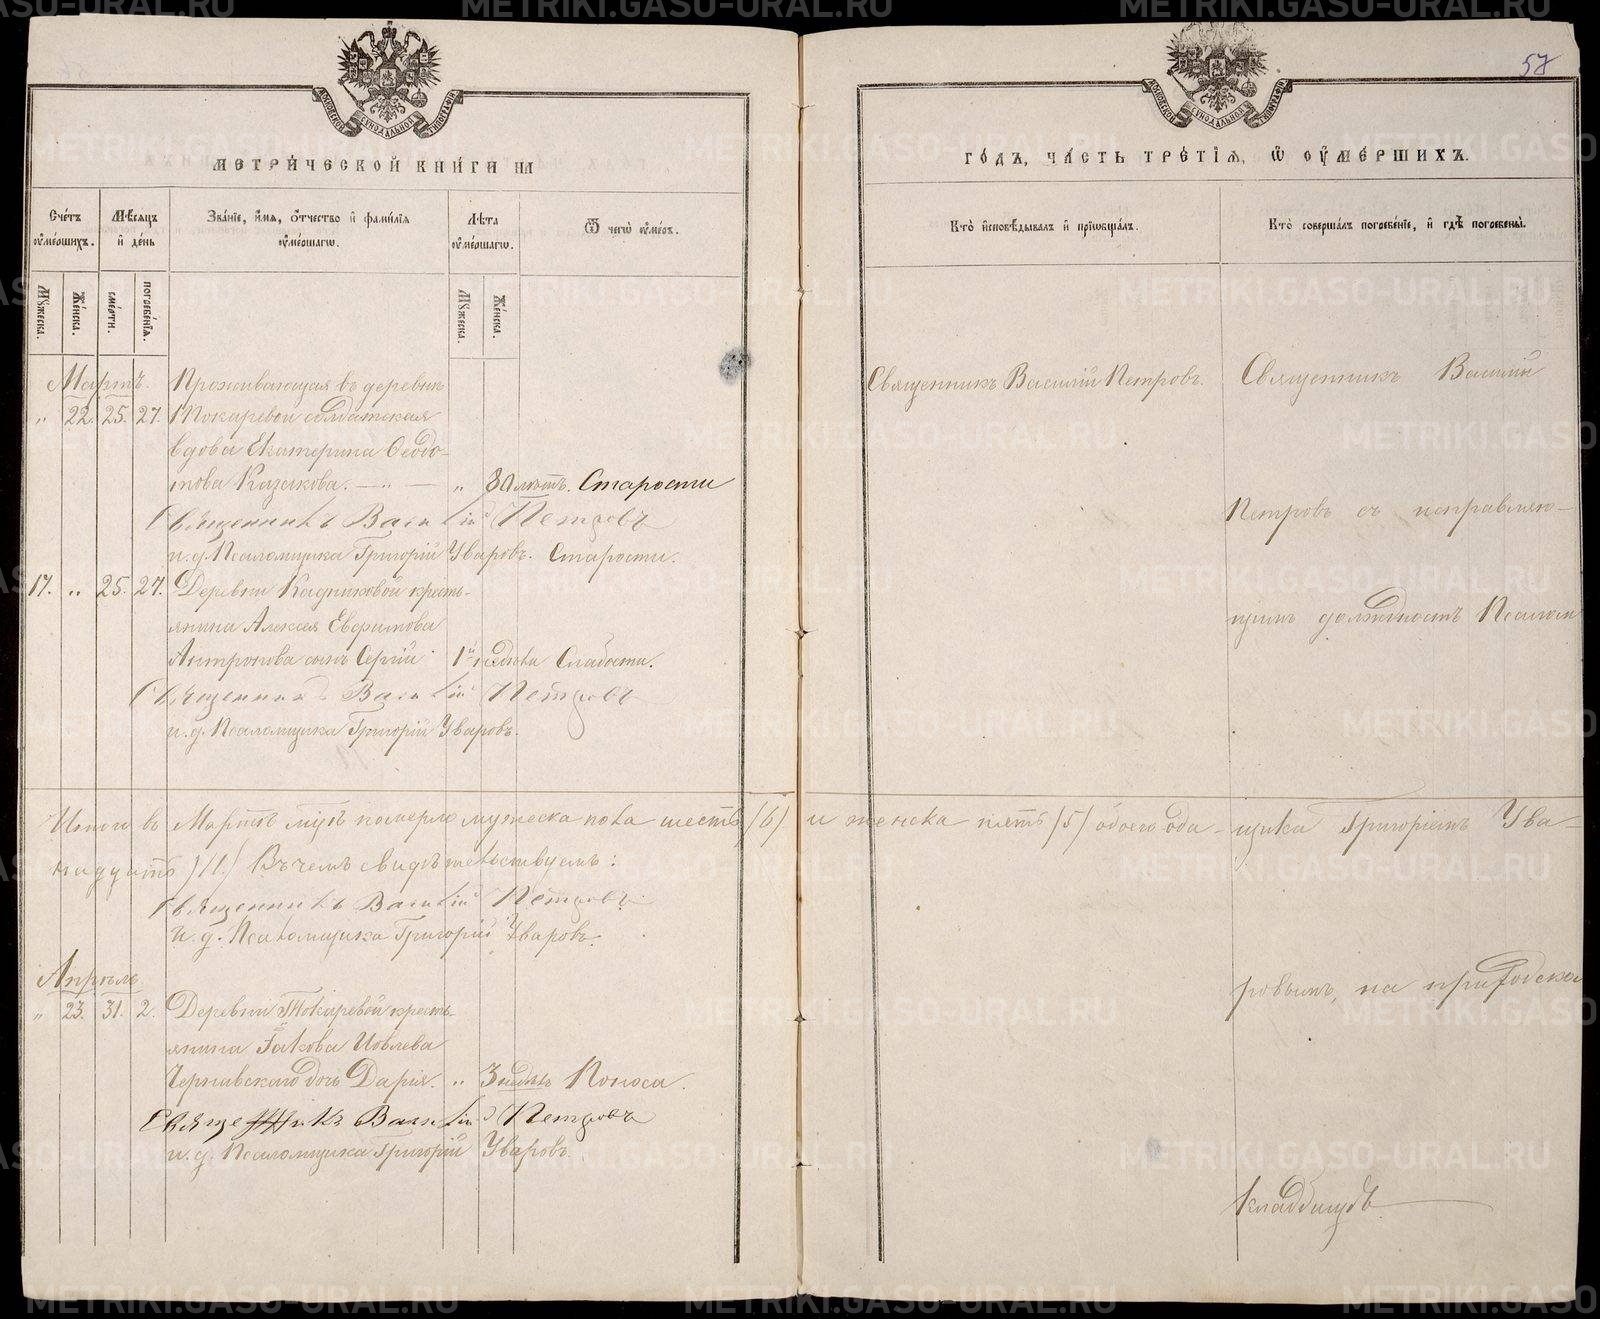 57
МОСКОВСКОЙ СѴНОДАЛЬНОЙ ТИПОГРАФІИ
МОСКОВСКОЙ СѴНОДАЛЬНОЙ ТИПОГРАФІИ
МЕТРИ́ЧЕСКОЙ КНИ́ГИ НА
Сче́тъ ᲂу҆ме́ршихъ.
Мѣ́сяцъ и҆ де́нь
Зва́нїе, и҆́мя, ѻ҆́тчество и҆ фами́лїя ᲂу҆ме́ршагѡ.
Лѣ́та ᲂу҆ме́ршагѡ.
Ѿ чегѡ̀ ᲂу҆́меръ.
Мꙋ́жеска.
Же́нска.
сме́рти.
погребе́нїѧ.
Мꙋ́жеска.
Же́нска.
Мартъ.
Проживающая въ деревнѣ
" 22. 25. 27. Токаревой солдатская
вдова Екатерина Ѳедо-
това Казакова. — " — " 80 лѣтъ. Старости
Священникъ Василій Петровъ
и. д. Псаломщика Григорій Уваровъ. Старости.
17. " 25. 27. Деревни Кадниковой кресть-
янина Алексея Евфимова
Антропова сынъ Сергій 1й недѣли Слабости.
Священникъ Василій Петровъ
и. д. Псаломщика Григорій Уваровъ.
Итого въ Мартѣ м-цѣ померло мужеска пола шесть (6) и женска пять (5) обоего оди-
надцать (11.) Въ чемъ свидѣтельствуемъ:
Священникъ Василій Петровъ
и. д. Псаломщика Григорій Уваровъ.
Апрѣль
" 23. 31. 2. Деревни Токаревой кресть-
янина Іакова Иовлева
Чернавскаго дочь Дарія. " 3 недѣль Поноса.
Священникъ Василій Петровъ
и. д. Псаломщика Григорій Уваровъ.
ГО́ДЪ, ЧА́СТЬ ТРЕ́ТЇѦ, Ѡ҆ ОУ҆МЕ́РШИХЪ.
Кто̀ и҆сповѣ́дывалъ и҆ прїѡбща́лъ.
Кто̀ соверша́лъ погребе́нїе, и҆ гдѣ̀ погребены̀.
Священникъ Василій Петровъ.
Священникъ Василій
Петровъ съ исправляю-
щимъ должность Псалом
щика Григоріемъ Ува-
ровымъ, на приходскомъ
кладбищѣ
METRIKI.GASO-URAL.RU